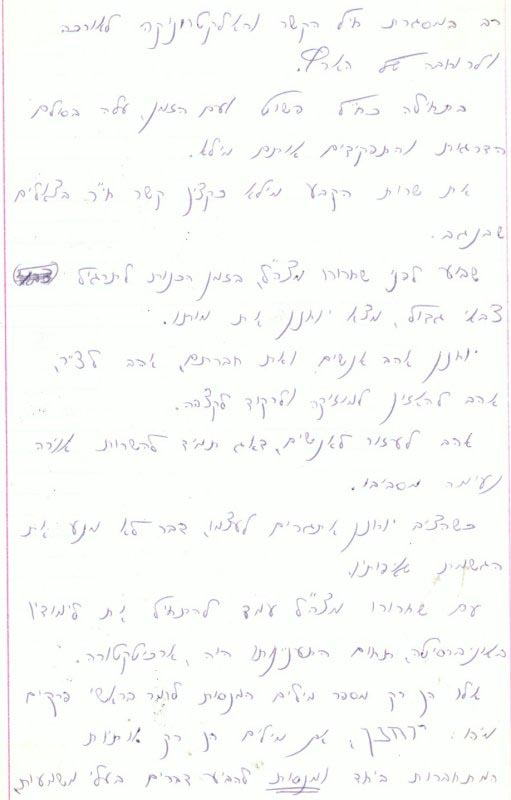 רב במסגרת חיל הקשר והאלקטרוניקה לאורכה
ולרוחבה של הארץ.
בתחילה כחייל פשוט ועם הזמן, עלה בסולם
הדרגות והתפקידים אותם מילא.
את שרות הקבע מילא כקצין קשר חי"ר בצאלים
שבנגב.
שבוע לפני שחרורו מצה"ל, בזמן הכנות לתרגיל
צבאי גדול, מצא יוחנן את מותו.
יוחנן אהב אנשים ואת חברתם, אהב לצייר,
אהב להאזין למוזיקה ולרקוד לקצבה.
אהב לעזור לאנשים, דאג תמיד להשרות אוירה
נעימה מסביבו.
כשהציב יוחנן אתגרים לעצמו, דבר לא מנע את
הגשמת שאיפותיו.
עם שחרורו מצה"ל עמד להתחיל את לימודיו
באוניברסיטה, תחום התענינותו היה, ארכיטקטורה.
אלו הן רק מספר מילים המנסות לומר בראשי פרקים
מיהו יוחנן, אך מילים הן רק אותיות
המתחברות ביחד ומנסות להביע דברים בעלי משמעות,